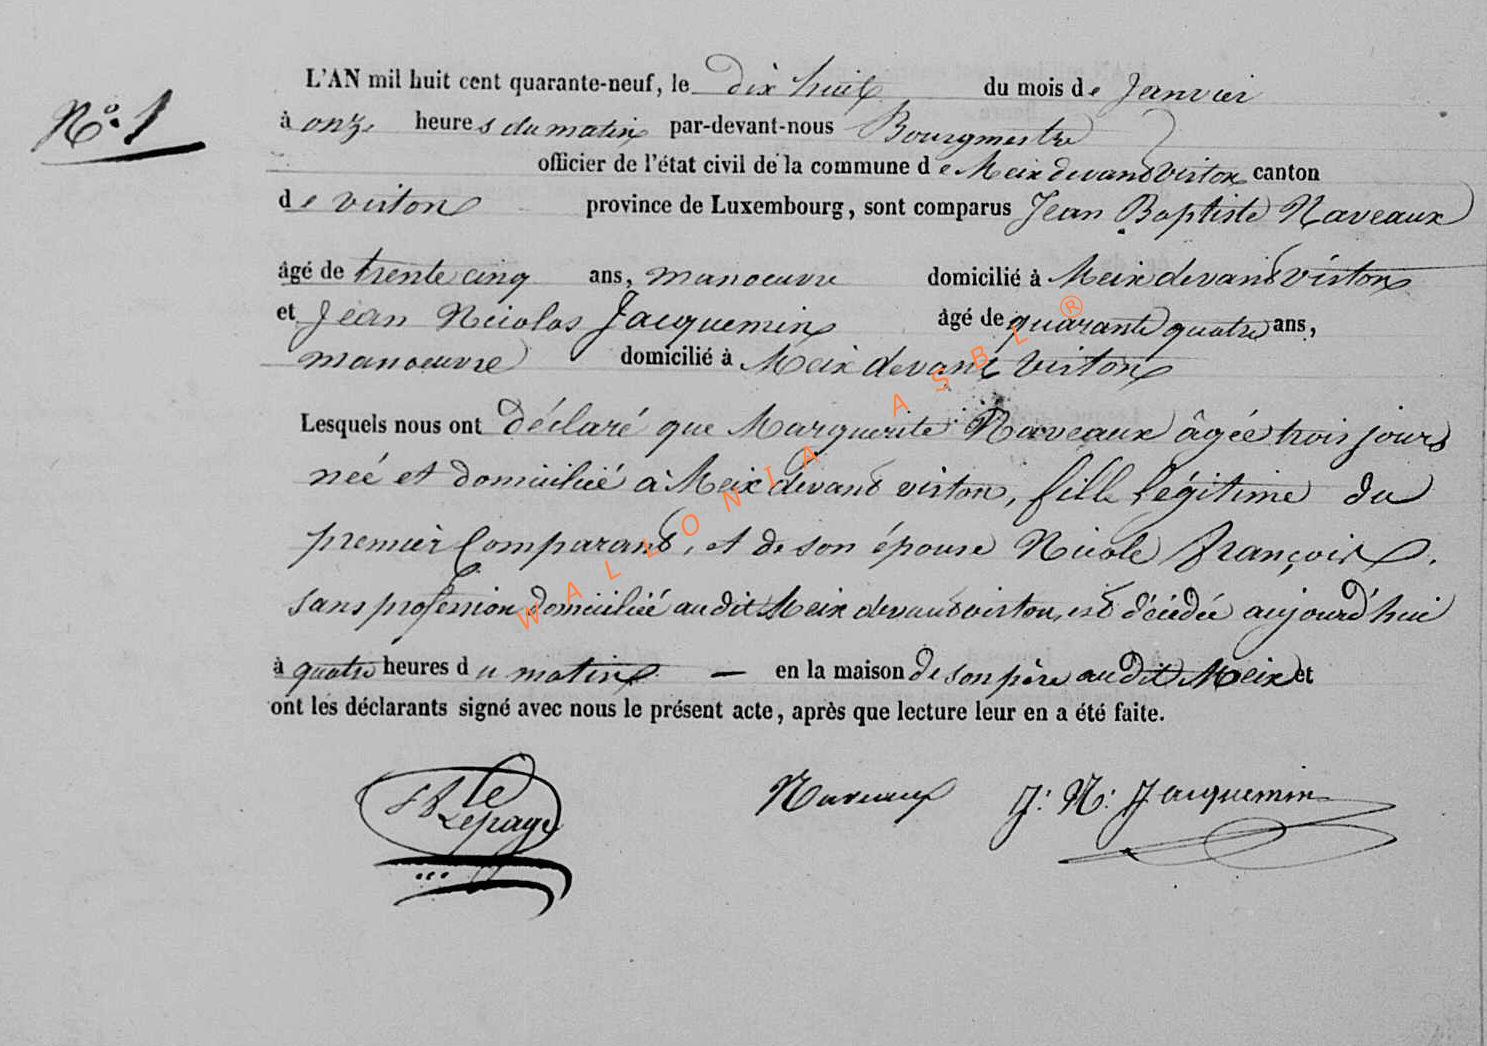 N.° 1
L'AN mil huit cent quarante-neuf, le dix huit du mois de Janvier
à onze heures du matin par-devant-nous Bourgmestre
officier de l'état civil de la commune de Meix devant virton canton
de virton province de Luxembourg, sont comparus Jean Baptiste Naveaux
âgé de trente cinq ans, manoeuvre domicilié à Meix devant virton
et Jean Nicolas Jacquemin âgé de quarante quatre ans,
manoeuvre domicilié à Meix devant Virton
Lesquels nous ont déclaré que Marguerite Naveaux âgée trois jours
neé et domiciliée à Meix devant virton, fille légitime du
premier Comparant, et de son épouse Nicole françois.
sans profession domiciliée audit Meix devant virton, est décédée aujourd'hui
à quatre heures du matin — en la maison de son père audit Meix et
ont les déclarants signé avec nous le présent acte, après que lecture leur en a été faite.
le
Lepage
Naveaux J: N: Jacquemin
WALLONIA ASBL ®